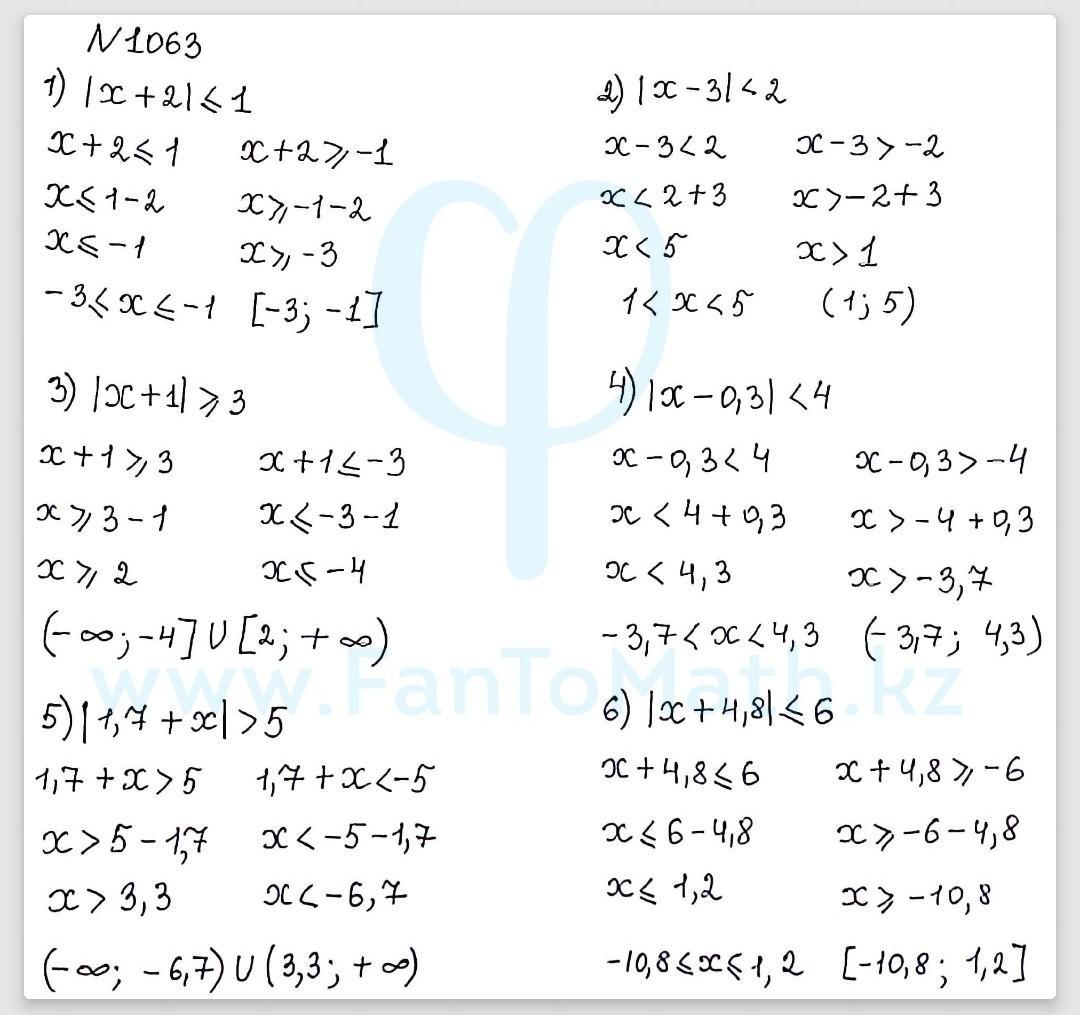 N1063
1) |x+2|⩽1
x+2⩽1 x+2⩾-1
x⩽1-2 x⩾-1-2
x⩽-1 x⩾-3
-3⩽x⩽-1 [-3; -1]
2) |x-3|<2
x-3<2 x-3>-2
x<2+3 x>-2+3
x<5 x>1
1<x<5 (1; 5)
3) |x+1|⩾3
x+1⩾3 x+1⩽-3
x⩾3-1 x⩽-3-1
x⩾2 x⩽-4
(-∞; -4]∪[2; +∞)
4) |x-0,3|<4
x-0,3<4 x-0,3>-4
x<4+0,3 x>-4+0,3
x<4,3 x>-3,7
-3,7<x<4,3 (-3,7; 4,3)
www.FanToMath.kz
5) |1,7+x|>5
1,7+x>5 1,7+x<-5
x>5-1,7 x<-5-1,7
x>3,3 x<-6,7
(-∞; -6,7)∪(3,3; +∞)
6) |x+4,8|⩽6
x+4,8⩽6 x+4,8⩾-6
x⩽6-4,8 x⩾-6-4,8
x⩽1,2 x⩾-10,8
-10,8⩽x⩽1,2 [-10,8; 1,2]